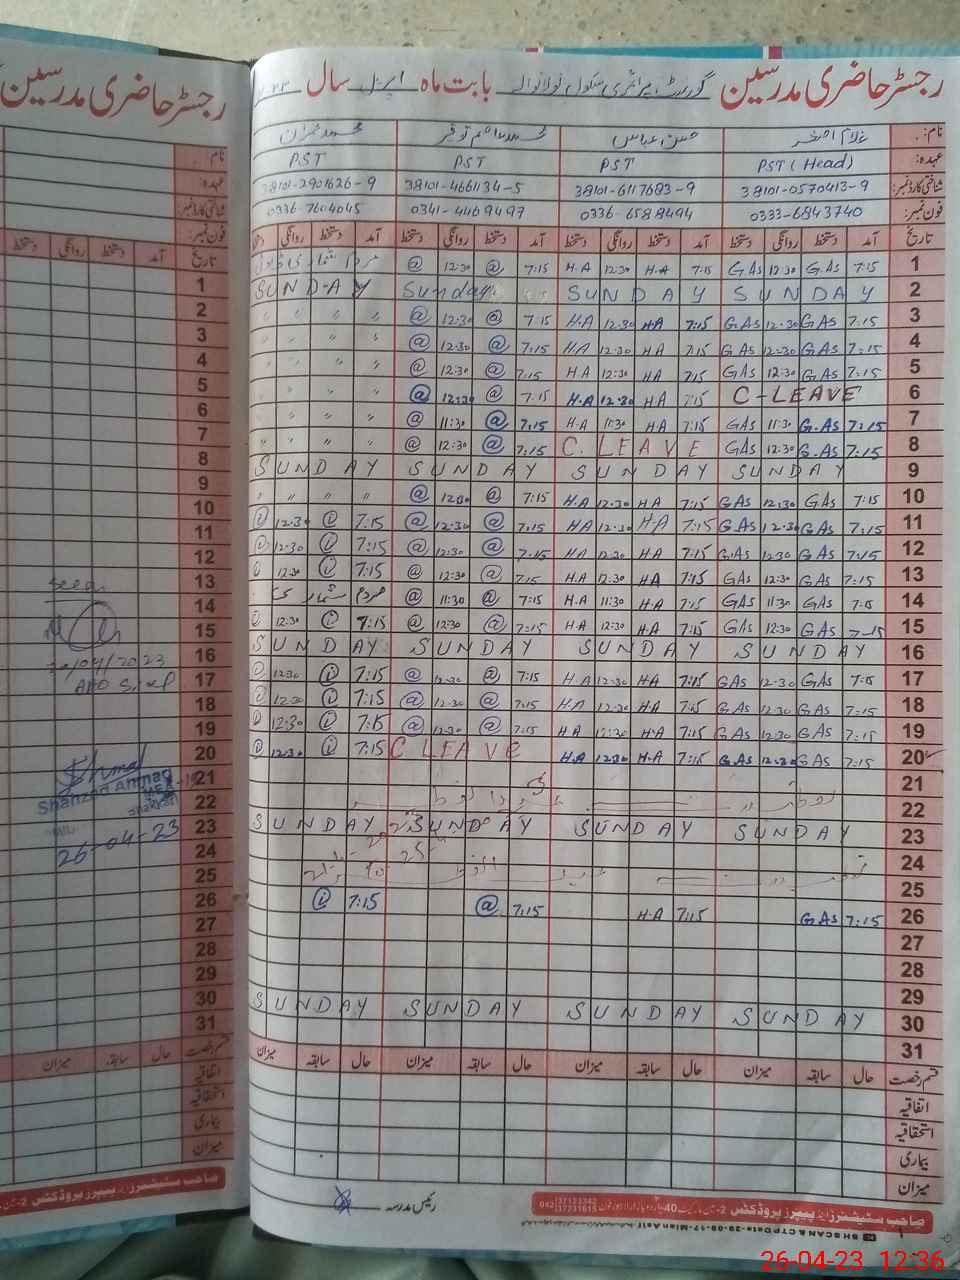 رجسٹر حاضری مدرسین گورنمنٹ پرائمری سکول بابت ماہ اپریل سال
نام: غلام اصغر حسن عباس محمد عمران
عہدہ: PST (Head) PST PST PST
شناختی کارڈ نمبر: 38101-0570413-9 38101-6117683-9 38101-4661134-5 38101-2901626-9
فون نمبر: 0333-6843740 0336-6588494 0341-4469497 0336-7604045
تاریخ آمد دستخط روانگی دستخط آمد دستخط روانگی دستخط آمد دستخط روانگی دستخط آمد دستخط روانگی دستخط
1 7:15 G.AS 12:30 GAS 7:15 H.A 12:30 H.A 7:15 @ 12:30 @
2 SUNDAY SUNDAY Sunday SUNDAY
3 7:15 GAS 12:30 G.AS 7:15 HA 12:30 H.A 7:15 @ 12:30 @ " " " "
4 7:15 GAS 12:30 GAS 7:15 HA 12:30 HA 7:15 @ 12:30 @ " " " "
5 7:15 GAS 12:30 GAS 7:15 HA 12:30 HA 7:15 @ 12:30 @ " " " "
6 C-LEAVE 7:15 HA 12:30 H.A 7:15 @ 12:30 @ " " " "
7 7:15 G.AS 11:30 GAS 7:15 HA 11:30 H.A 7:15 @ 11:30 @ " " " "
8 7:15 G.AS 12:30 GAS C. LEAVE 7:15 @ 12:30 @ " " " "
9 SUNDAY SUNDAY SUNDAY SUNDAY
10 7:15 GAS 12:30 GAS 7:15 HA 12:30 H.A 7:15 @ 12:30 @ " " " "
11 7:15 GAS 12:30 GAS 7:15 H.A 12:30 HA 7:15 @ 12:30 @ 7:15 12:30
12 7:15 GAS 12:30 G.AS 7:15 HA 12:30 H.A 7:15 @ 12:30 @ 7:15 12:30
13 7:15 GAS 12:30 GAS 7:15 HA 12:30 H.A 7:15 @ 12:30 @ 7:15 12:30
14 7:15 GAS 11:30 GAS 7:15 H.A 11:30 H.A 7:15 @ 11:30 @ مردم شماری
15 7:15 GAS 12:30 GAS 7:15 H.A 12:30 H.A 7:15 @ 12:30 @ 7:15 12:30
16 SUNDAY SUNDAY SUNDAY SUNDAY
17 7:15 GAS 12:30 GAS 7:15 HA 12:30 H.A 7:15 @ 12:30 @ 7:15 12:30
18 7:15 GAS 12:30 GAS 7:15 H.A 12:30 H.A 7:15 @ 12:30 @ 7:15 12:30
19 7:15 GAS 12:30 GAS 7:15 H.A 12:30 H.A 7:15 @ 12:30 @ 7:15 12:30
20 7:15 GAS 12:30 G.AS 7:15 H.A 12:30 H.A C LEAVE 7:15 12:30
21
22
23 SUNDAY SUNDAY SUNDAY SUNDAY
24
25
26 7:15 GAS 7:15 H.A 7:15 @ 7:15
27
28
29
30 SUNDAY SUNDAY SUNDAY SUNDAY
31
قسم رخصت حال سابقہ میزان حال سابقہ میزان حال سابقہ میزان حال سابقہ میزان
اتفاقیہ
استحقاقیہ
بیماری
میزان
رئیس مدرسہ
صاحب سٹیشنرز اینڈ پیپرز پروڈکٹس
042 37123342 37231615
رجسٹر حاضری مدرسین
نام:
عہدہ:
شناختی کارڈ نمبر:
فون نمبر:
تاریخ آمد دستخط روانگی دستخط
1
2
3
4
5
6
7
8
9
10
11
12
13
14
15
16
17
18
19
20
21
22
23
24
25
26
27
28
29
30
31
seen
/04/2023
Shahzad Ahmad
26-04-23
قسم رخصت حال سابقہ میزان
اتفاقیہ
استحقاقیہ
بیماری
میزان
صاحب سٹیشنرز اینڈ پیپرز پروڈکٹس
26-04-23 12:36